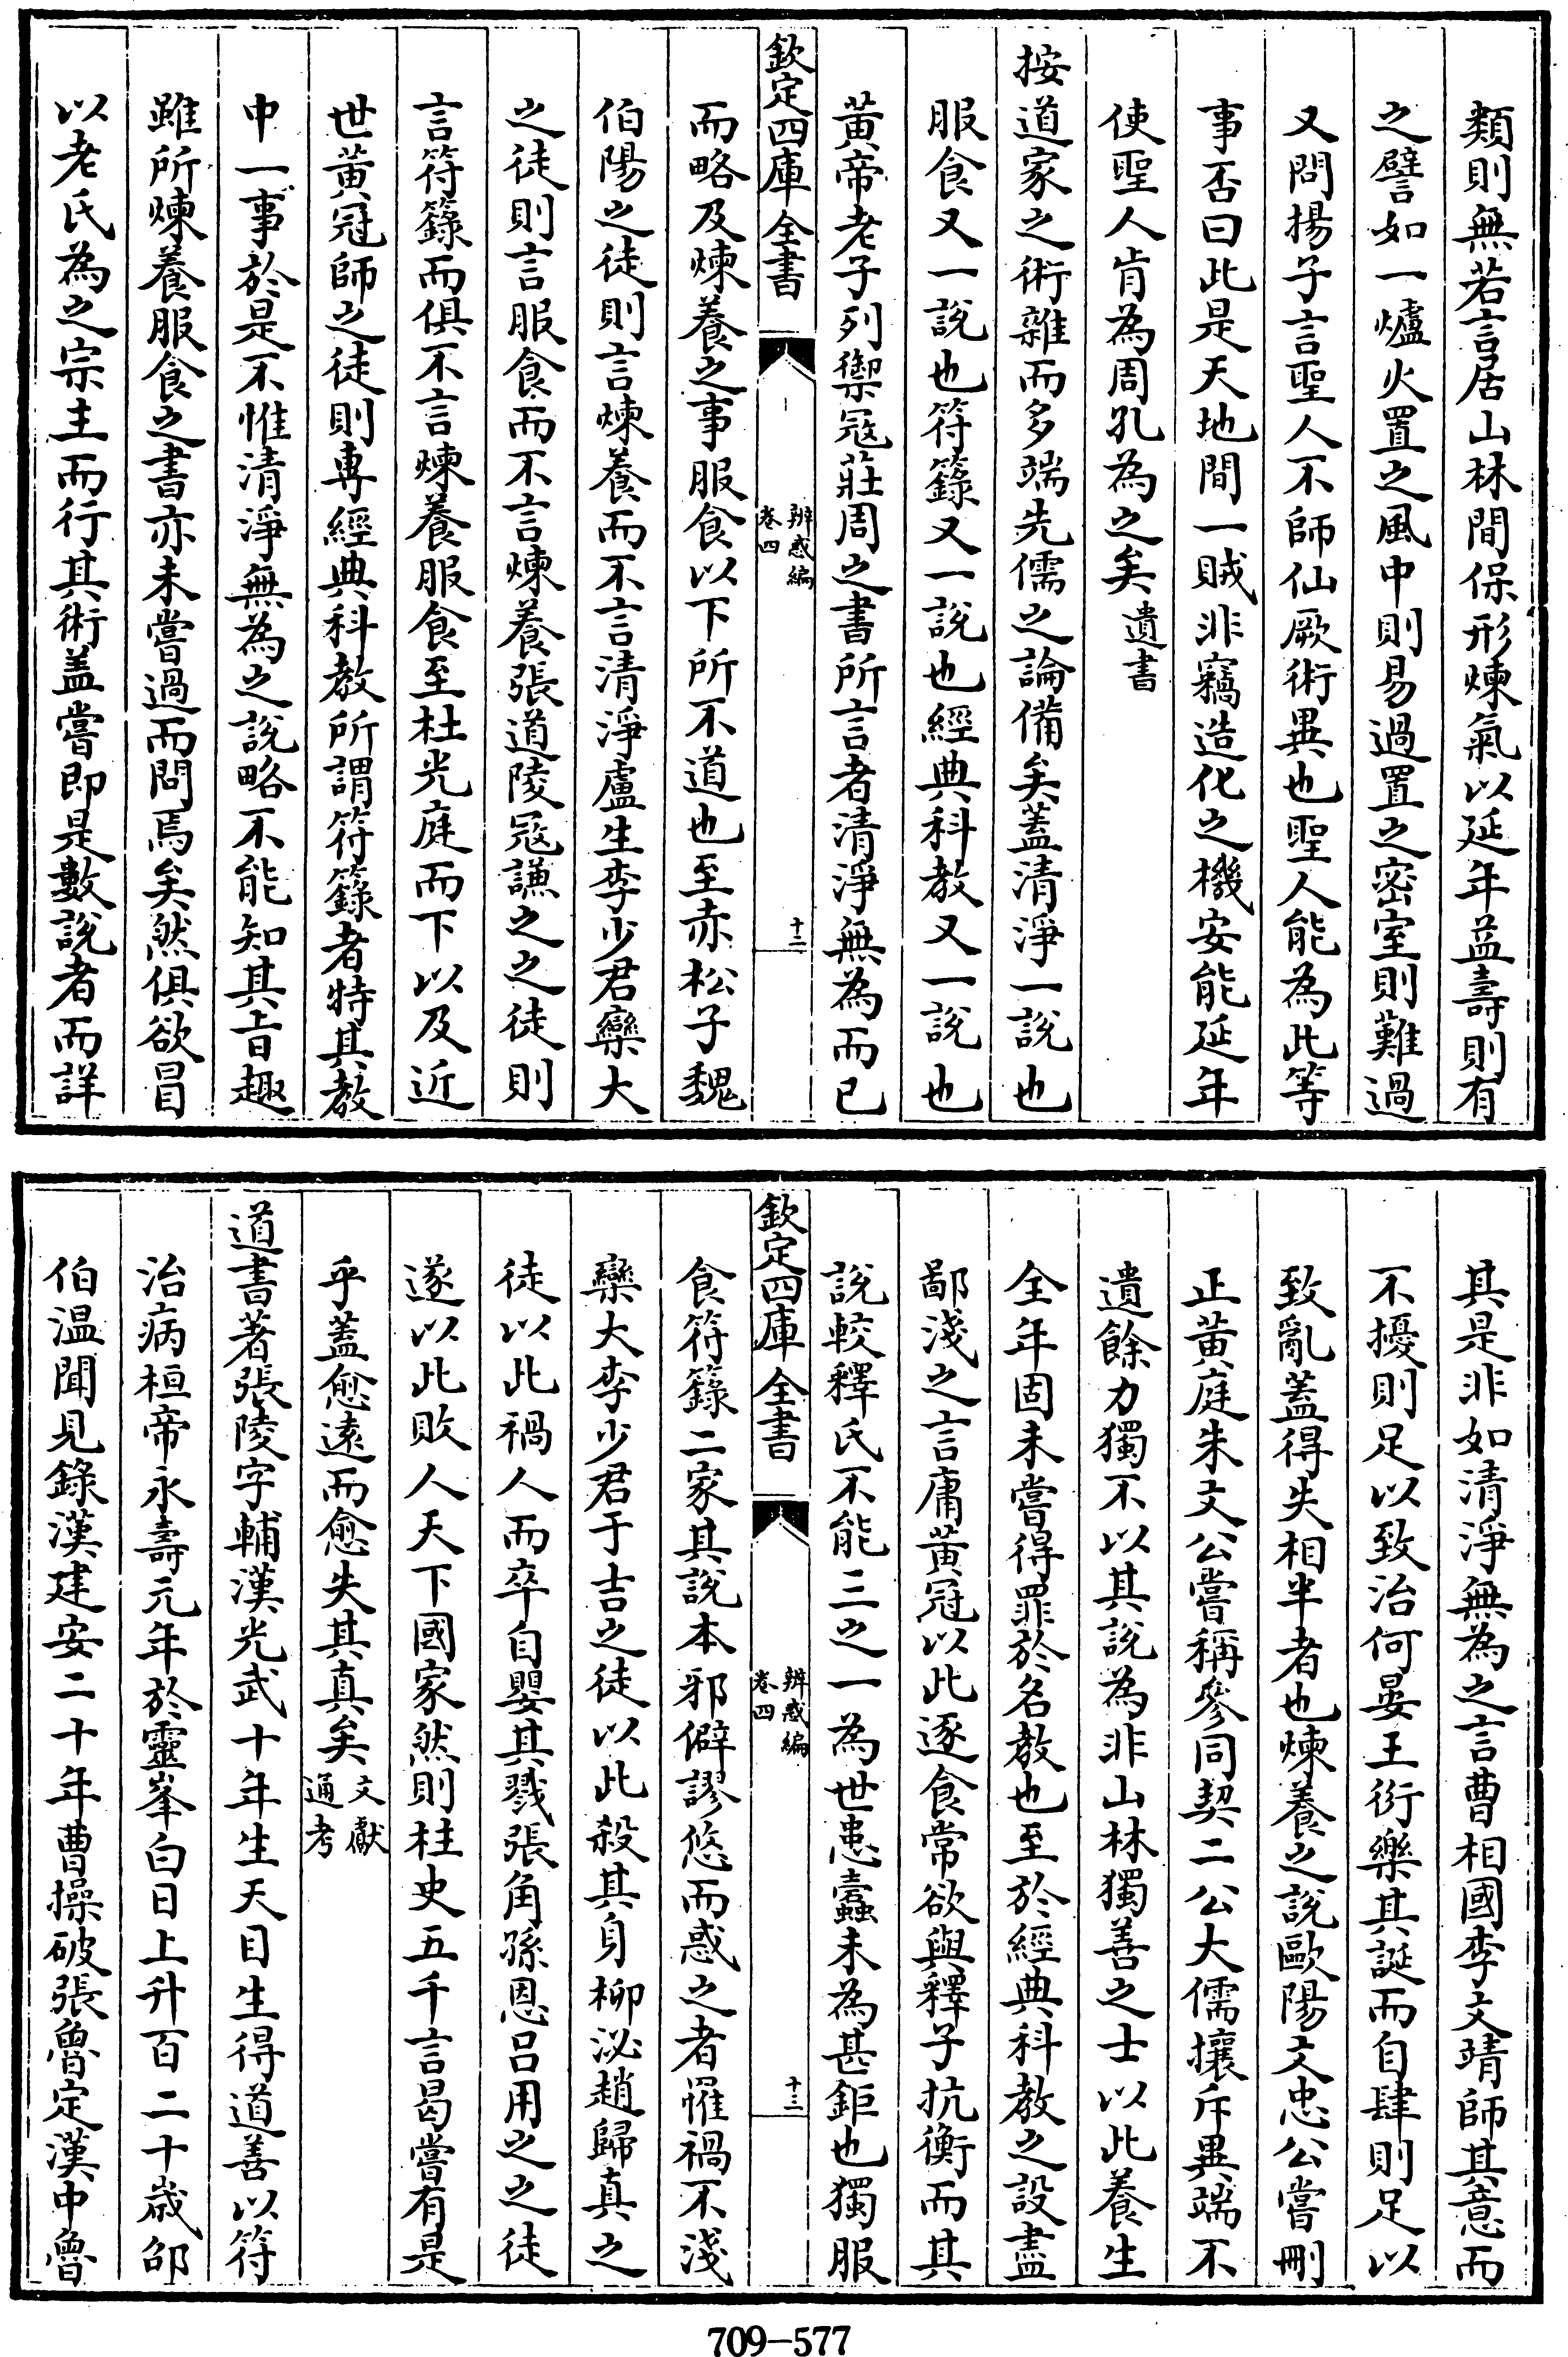 類則無若言居山林間保形煉氣以延年益壽則有
之譬如一爐火置之風中則易過置之密室則難過
又問揚子言聖人不師仙厥術異也聖人能為此等
事否曰此是天地間一賊非竊造化之機安能延年
使聖人肯為周孔為之矣遺書
按道家之術雜而多端先儒之論備矣蓋清淨一說也
服食又一說也符籙又一說也經典科教又一說也
黃帝老子列禦寇莊周之書所言者清淨無為而已
欽定四庫全書
辨惑編
卷四
十二
而略及煉養之事服食以下所不道也至赤松子魏
伯陽之徒則言煉養而不言清淨盧生李少君欒大
之徒則言服食而不言煉養張道陵寇謙之之徒則
言符籙而俱不言煉養服食至杜光庭而下以及近
世黃冠師之徒則專經典科教所謂符籙者特其教
中一事於是不惟清淨無為之說略不能知其旨趣
雖所煉養服食之書亦未嘗過而問焉矣然俱欲冒
以老氏為之宗主而行其術盖嘗即是數說者而詳
其是非如清淨無為之言曹相國李文靖師其意而
不擾則足以致治何晏王衍樂其誕而自肆則足以
致亂蓋得失相半者也煉養之說歐陽文忠公嘗刪
正黃庭朱文公嘗稱參同契二公大儒攘斥異端不
遺餘力獨不以其說為非山林獨善之士以此養生
全年固未嘗得罪於名教也至於經典科教之設盡
鄙淺之言庸黃冠以此逐食常欲與釋子抗衡而其
說較釋氏不能三之一為世患蠹未為甚鉅也獨服
欽定四庫全書
辨惑編
卷四
十三
食符籙二家其說本邪僻謬悠而惑之者罹禍不淺
欒大李少君于吉之徒以此殺其身柳泌趙歸真之
徒以此禍人而卒自嬰其戮張角孫恩吕用之之徒
遂以此敗人天下國家然則柱史五千言曷嘗有是
乎蓋愈遠而愈失其真矣文獻通考
道書著張陵字輔漢光武十年生天目生得道善以符
治病桓帝永壽元年於靈峯白日上升百二十歲邵
伯温聞見錄漢建安二十年曹操破張魯定漢中魯
709-577